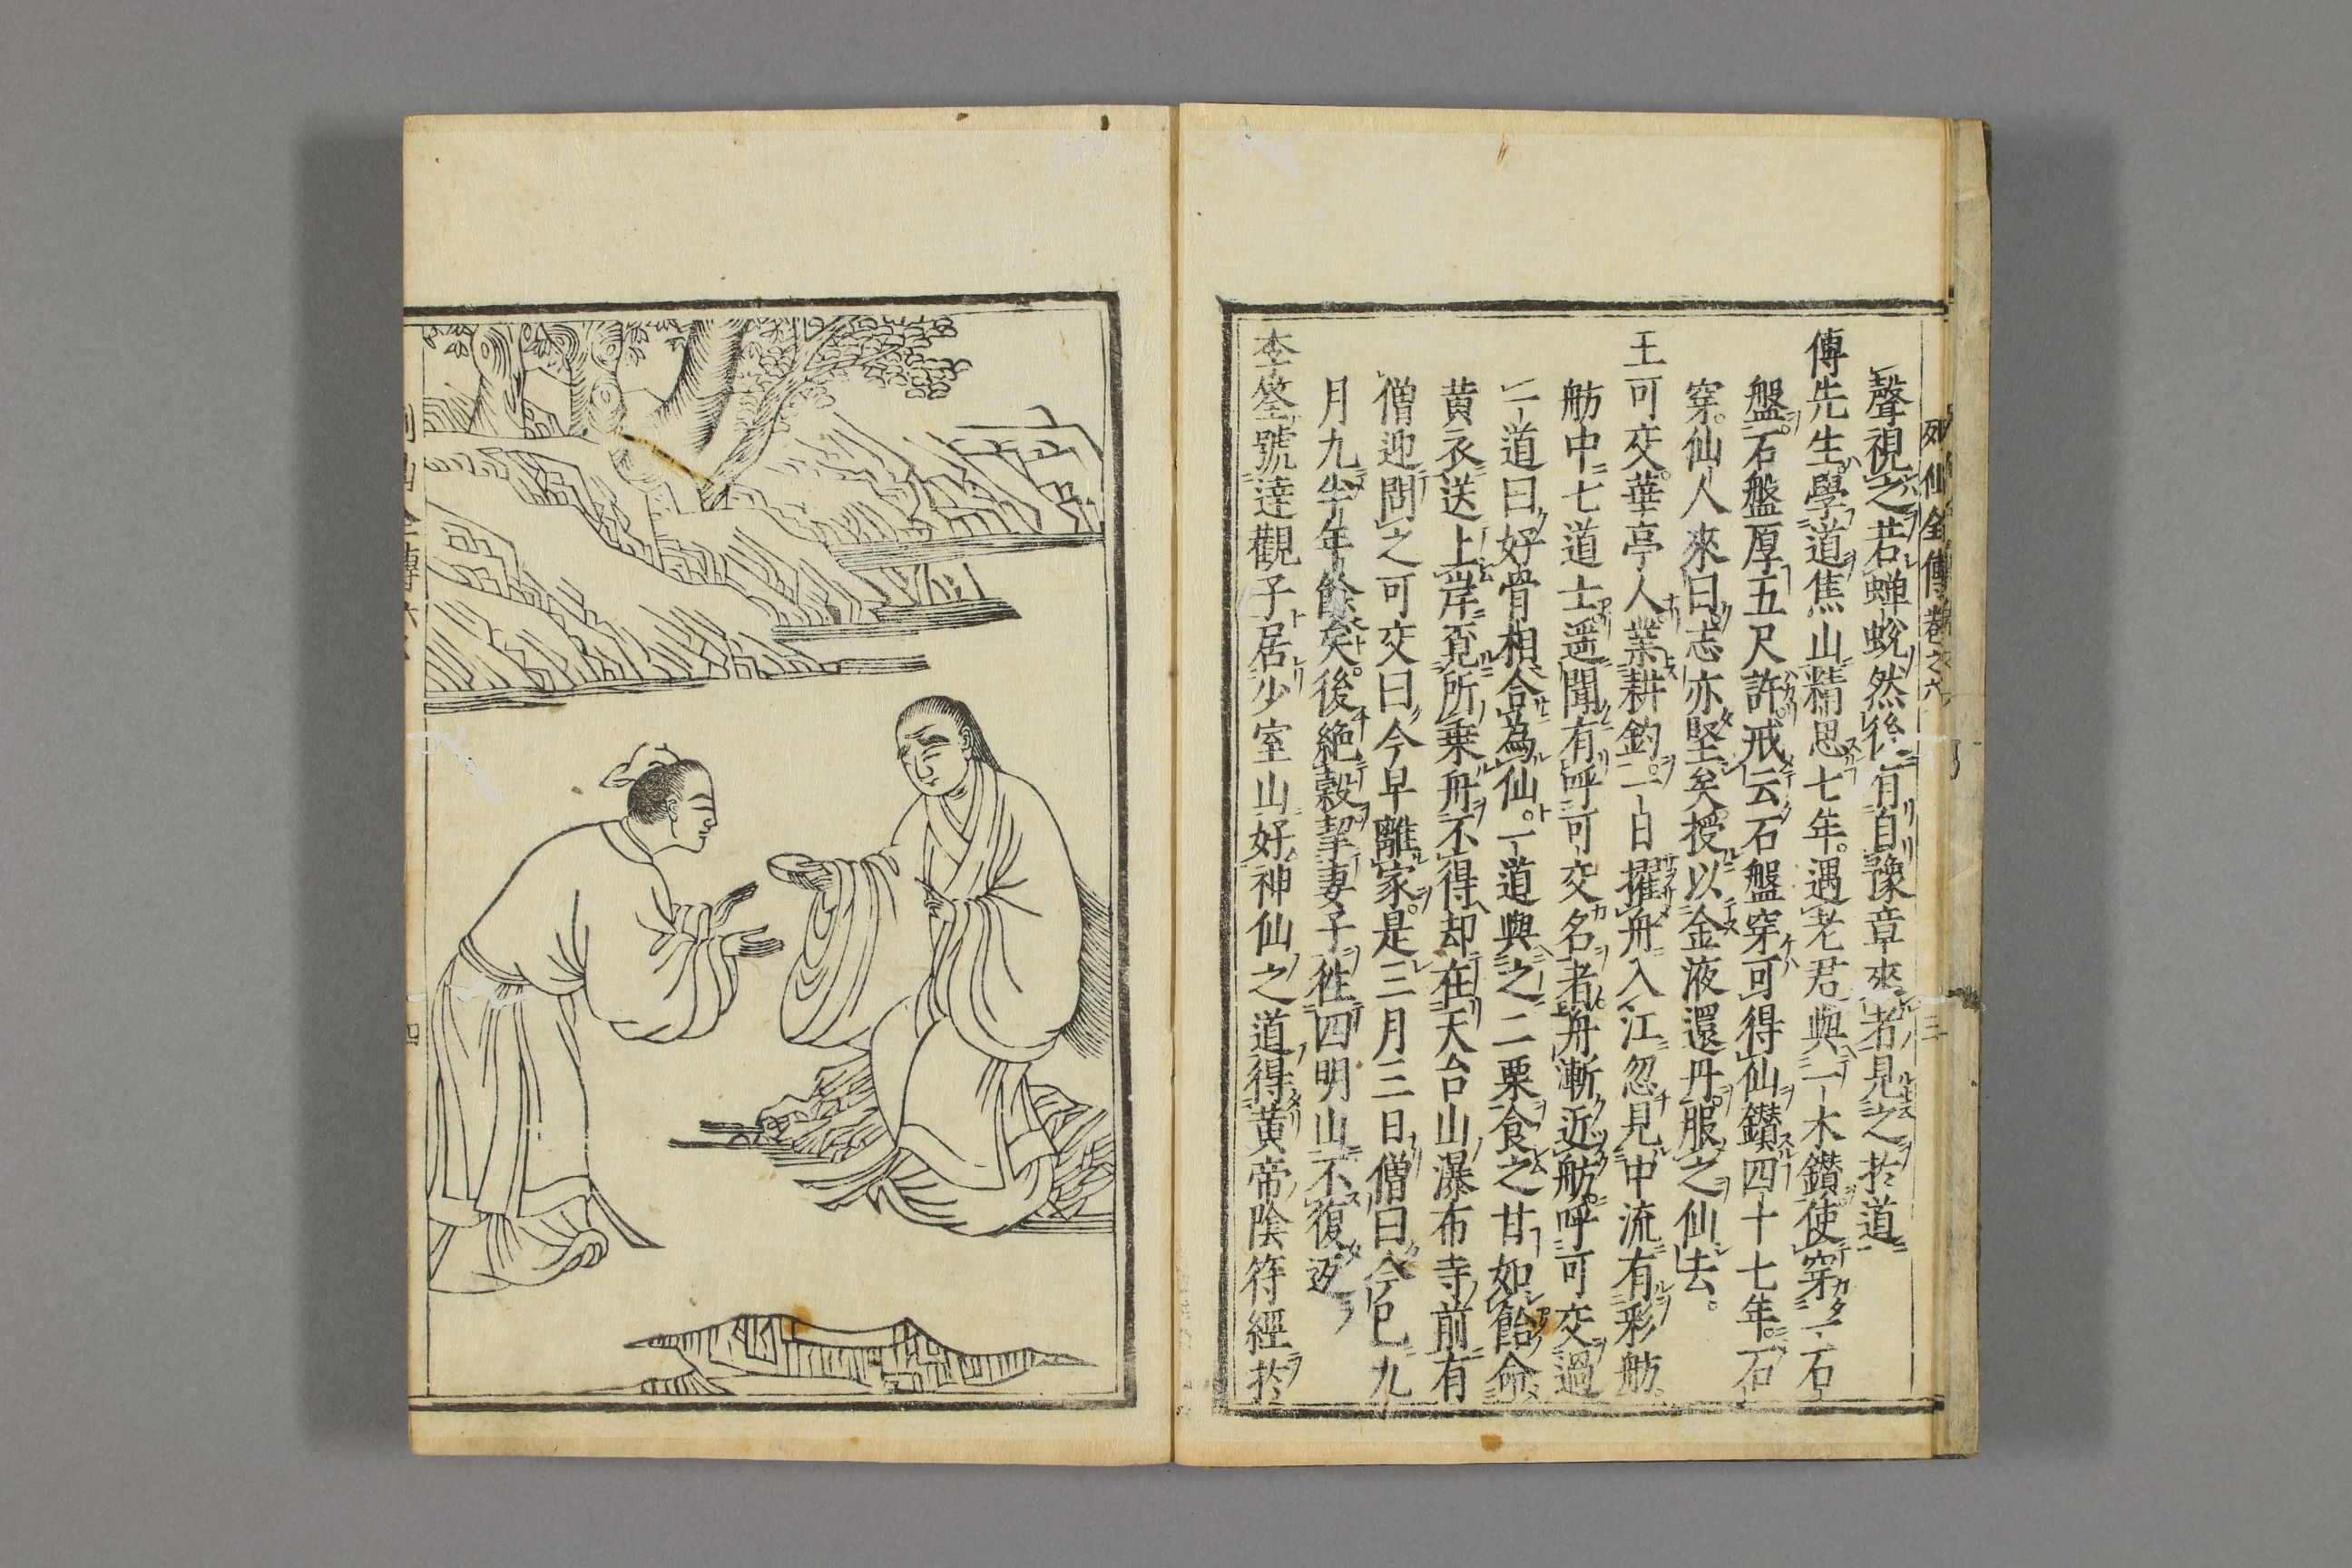 列仙全傳卷之六
三
聲視之若蟬蛻然後有自豫章來者見之於道
傅先生學道焦山精思七年。遇老君與一木鑽使穿一石
盤。石盤厚五尺許。戒云石盤穿可得仙鑽四十七年。石
穿。仙人來曰。志亦堅矣。授以金液還丹。服之仙去。
王可交。華亭人。業耕釣。一日擢舟入江忽見中流有彩舫。
舫中七道士遥聞有呼可交名者。舟漸近舫。呼可交過
一道曰好骨相合為仙。一道與之二栗食之甘如飴命
黄衣送上岸覔所乗舟不得却在天台山瀑布寺前有
僧迎問之可交曰今早離家。是三月三日僧曰今已九
月九半年餘矣。後絶穀挈妻子徃四明山不復返
李筌號達觀子居少室山好神仙之道得黄帝陰符經於
四